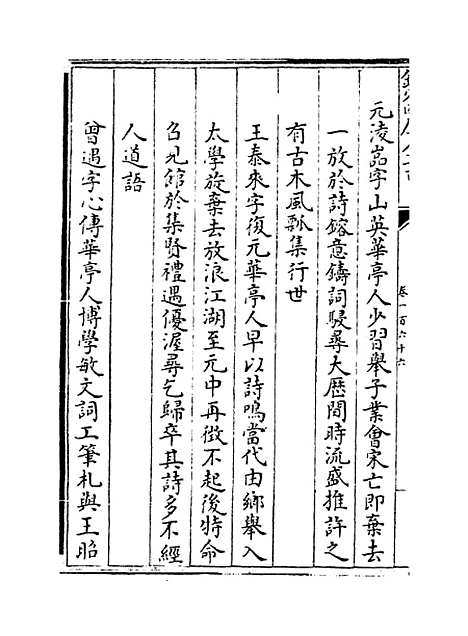 卷一百六十六
元凌嵓字山英華亭人少習舉子業會宋亡即棄去
一放於詩鎔意鑄詞駸尋大歷間時流盛推許之
有古木風瓢集行世
王泰來字復元華亭人早以詩鳴當代由鄉舉入
太學旋棄去放浪江湖至元中再徴不起後特命
召見館於集賢禮遇優渥尋乞歸卒其詩多不經
人道語
曾遇字心傳華亭人博學敏文詞工筆札與王昭